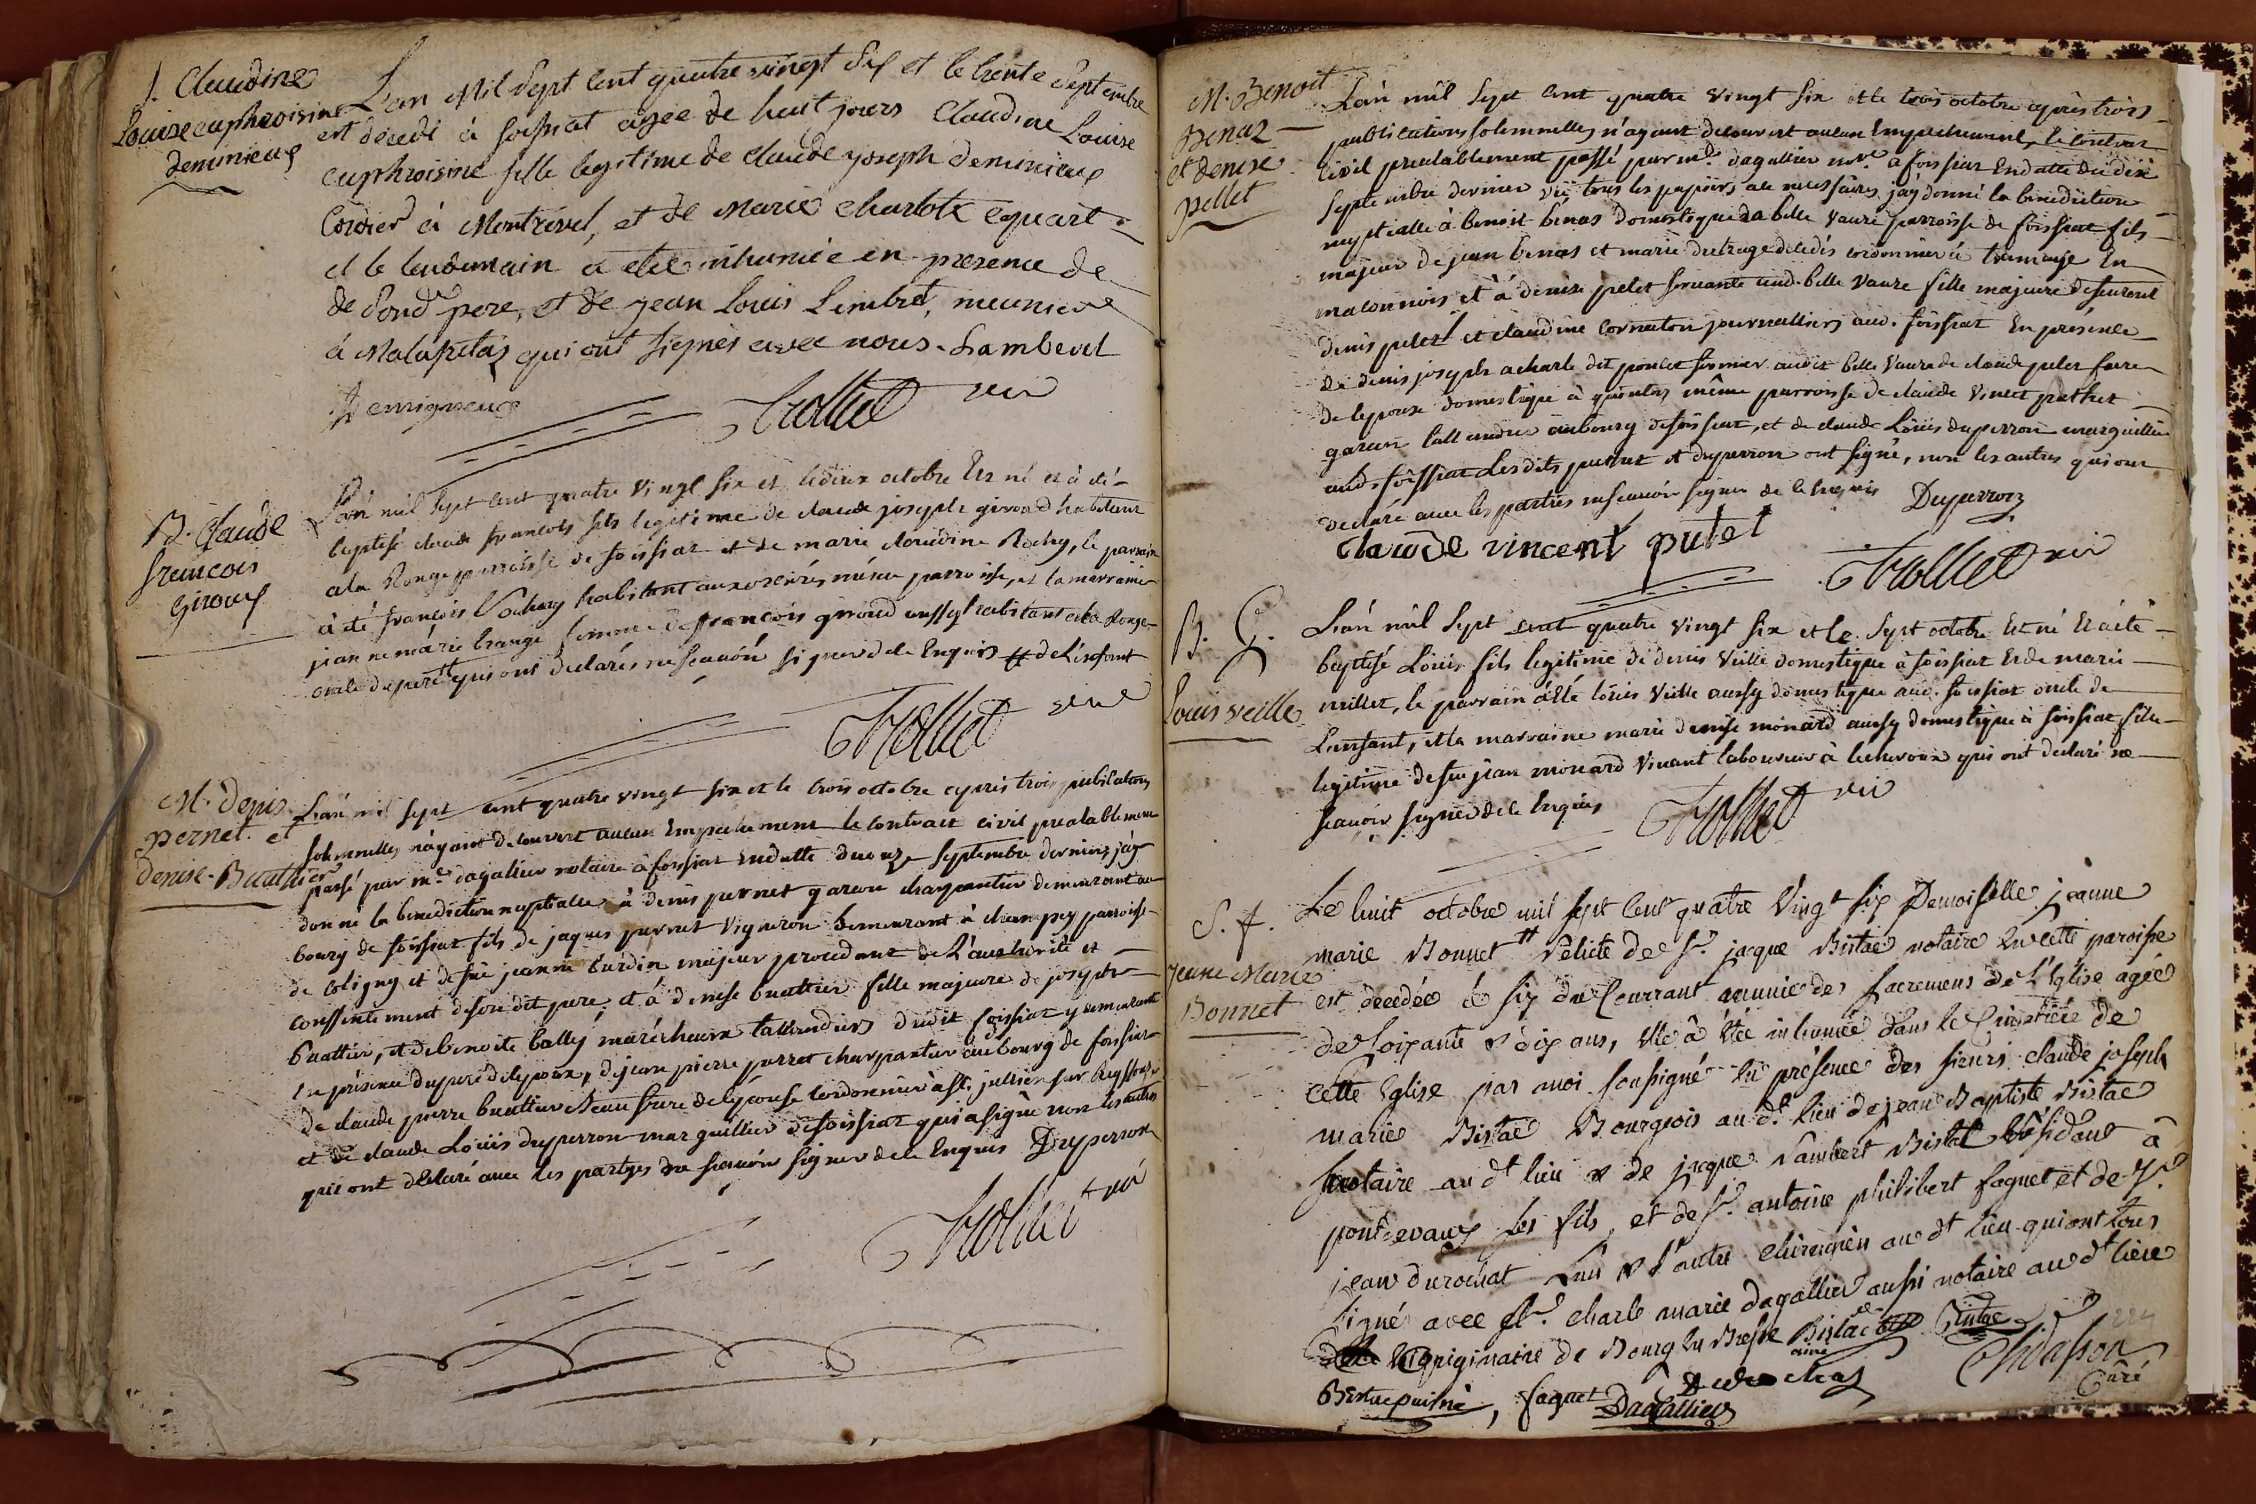 f. Claudine
Louise euphroisine
deminieux
L'an Mil Sept Cent quatre vingt Six et le trente Septembre
est décédé à foissiat agée de huit jours Claudine Louise
euphroisine fille legitime de Claude joseph deminieux
Cordier à Montrevel, et de Marie Charlote Equart
et le lendemain a eté inhumée en presence de
de Sond pere, et de jean Louis Lembret, meunier
à Malafretas qui ont signés avec nous. Lamberet
Demigneux
Trolliet vic
B. Claude
francois
Giroud
L'an mil Sept cent quatre Vingt Six et le deux octobre Est né et à eté
baptisé claude francois fils legitime de claude joseph giroud habitant
a la Ronge parroisse de foissiat et de marie claudine Rochy, le parrain
à eté francois Vachery habitant aux oscirès même parroisse, et la marraine
jeanne marie brange femme de francois giroud aussy habitant a la Ronge
oncle du pere qui ont declarés ne scauoir signer de ce Enquis de L'enfant
Trolliet vic
M. Denis
pernet et
denise Buathier
L'an mil sept cent quatre vingt six et le trois octobre apres trois publications
solemnelles n'ayant decouvert aucun Empechement le contract civil prealablement
passé par me dagallier notaire à foissiat En datte du onze septembre dernier, jay
donné la benediction nuptialle à denis pernet garcon charpentier demeurant au
bourg de foissiat fils de jaques pernet vigneron demeurant à champey parroisse
de coligny et de fue jeanne burdin majeur procedant de L'authorité et
consentement de son dit pere, et à denise buathier fille majeure de joseph
buathier, et de benoite balley maréchaux taillandiers dudit foissiat y demeurant
En présence du pere de lepoux, de jean pierre perret charpentier au bourg de foissiat
de claude pierre buathier frere de lépouse cordonnier à st. jullien sur Reyssouze
et de claude Loüis duperron marguillier de foissiat qui a signé non les autres
qui ont déclaré avec les partyes ne scauoir signer de ce Enquis Duperron
Trolliet vic
M. Benoit
Benaz
et denise
pellet
L'an mil Sept Cent quatre Vingt Six et le trois octobre après trois
publications solemnelles n'ayant decouvert aucun Empechement, le contrat
Civil prealablement passé par me. dagallier nore. à foissiat En datte du dix
Septembre dernier vü tous les papiers necessaires, jaÿ donné la benediction
nuptialle à benoit bénas domestique à belle vaure parroisse de foissiat fils
majeur de jean benas et marie dutrage décédés cordonnier à tramaye En
maconnois et à denise pelet servante aud. belle vaure fille majeure de feurent
denis pelet et claudine cornaton journalliers aud. foissiat En présence
de denis joseph acharle dit poncet fermier audit belle vaure de claude pelet frere
de lepouse domestique à même parroisse de claude vincet puthet
garcon taillandier au bourg de foissiat, et de claude Loüis duperron marguillier
aud. foissiat Lesdits puthet et duperron ont signé, non les autres qui ont
declaré avec les parties ne scauoir signer de ce Enquis Duperron
Claude vincent putet
Trolliet vic
B. G.
Louis veille
L'an mil Sept cent quatre Vingt six et le Sept octobre Est né Et à eté
baptisé Loüis fils legitime de denis Veille domestique à foissiat Et de marie
millet, le parrain à eté loüis Veille aussy domestique aud. foissiat oncle de
L'enfant, et la marraine marie denise monard aussy domestique à foissiat fille
legitime de feu jean monard vivant laboureur à lescheroux qui ont declaré ne
scauoir signer de ce Enquis
Trolliet vic
S. f.
jeane Marie
Bonnet
Le huit octobre mil sept Cent quatre Vingt six Demoiselle jeanne
marie Bonnet Relicte de Sr. jacque Bistac notaire En cette paroisse
est decedée le six du Courrant munie des sacremens de L'Eglise agée
de soixante & dix ans, Elle â Etée inhumée dans le Cimetière de
cette Eglise par moi soussigné En présence des sieurs claude joseph
marie Bistac Bourgeois au dt. lieu de jean Baptiste Bistac
notaire au dt lieu & de jacque Lambert Bistac Résidant â
pontdevaux ses fils, et de Sr. antoine philibert faguet et de Sr.
jean durochat L'un & L'autre chirurgien au dt lieu qui ont tous
signés avec Sr. charle marie dagallier aussi notaire au dt lieu
originaire de Bourg En Bresse Bistac ainé Bistac
Chidasson
Curé
Bistac puiné, faguet Durochas
Dagallier